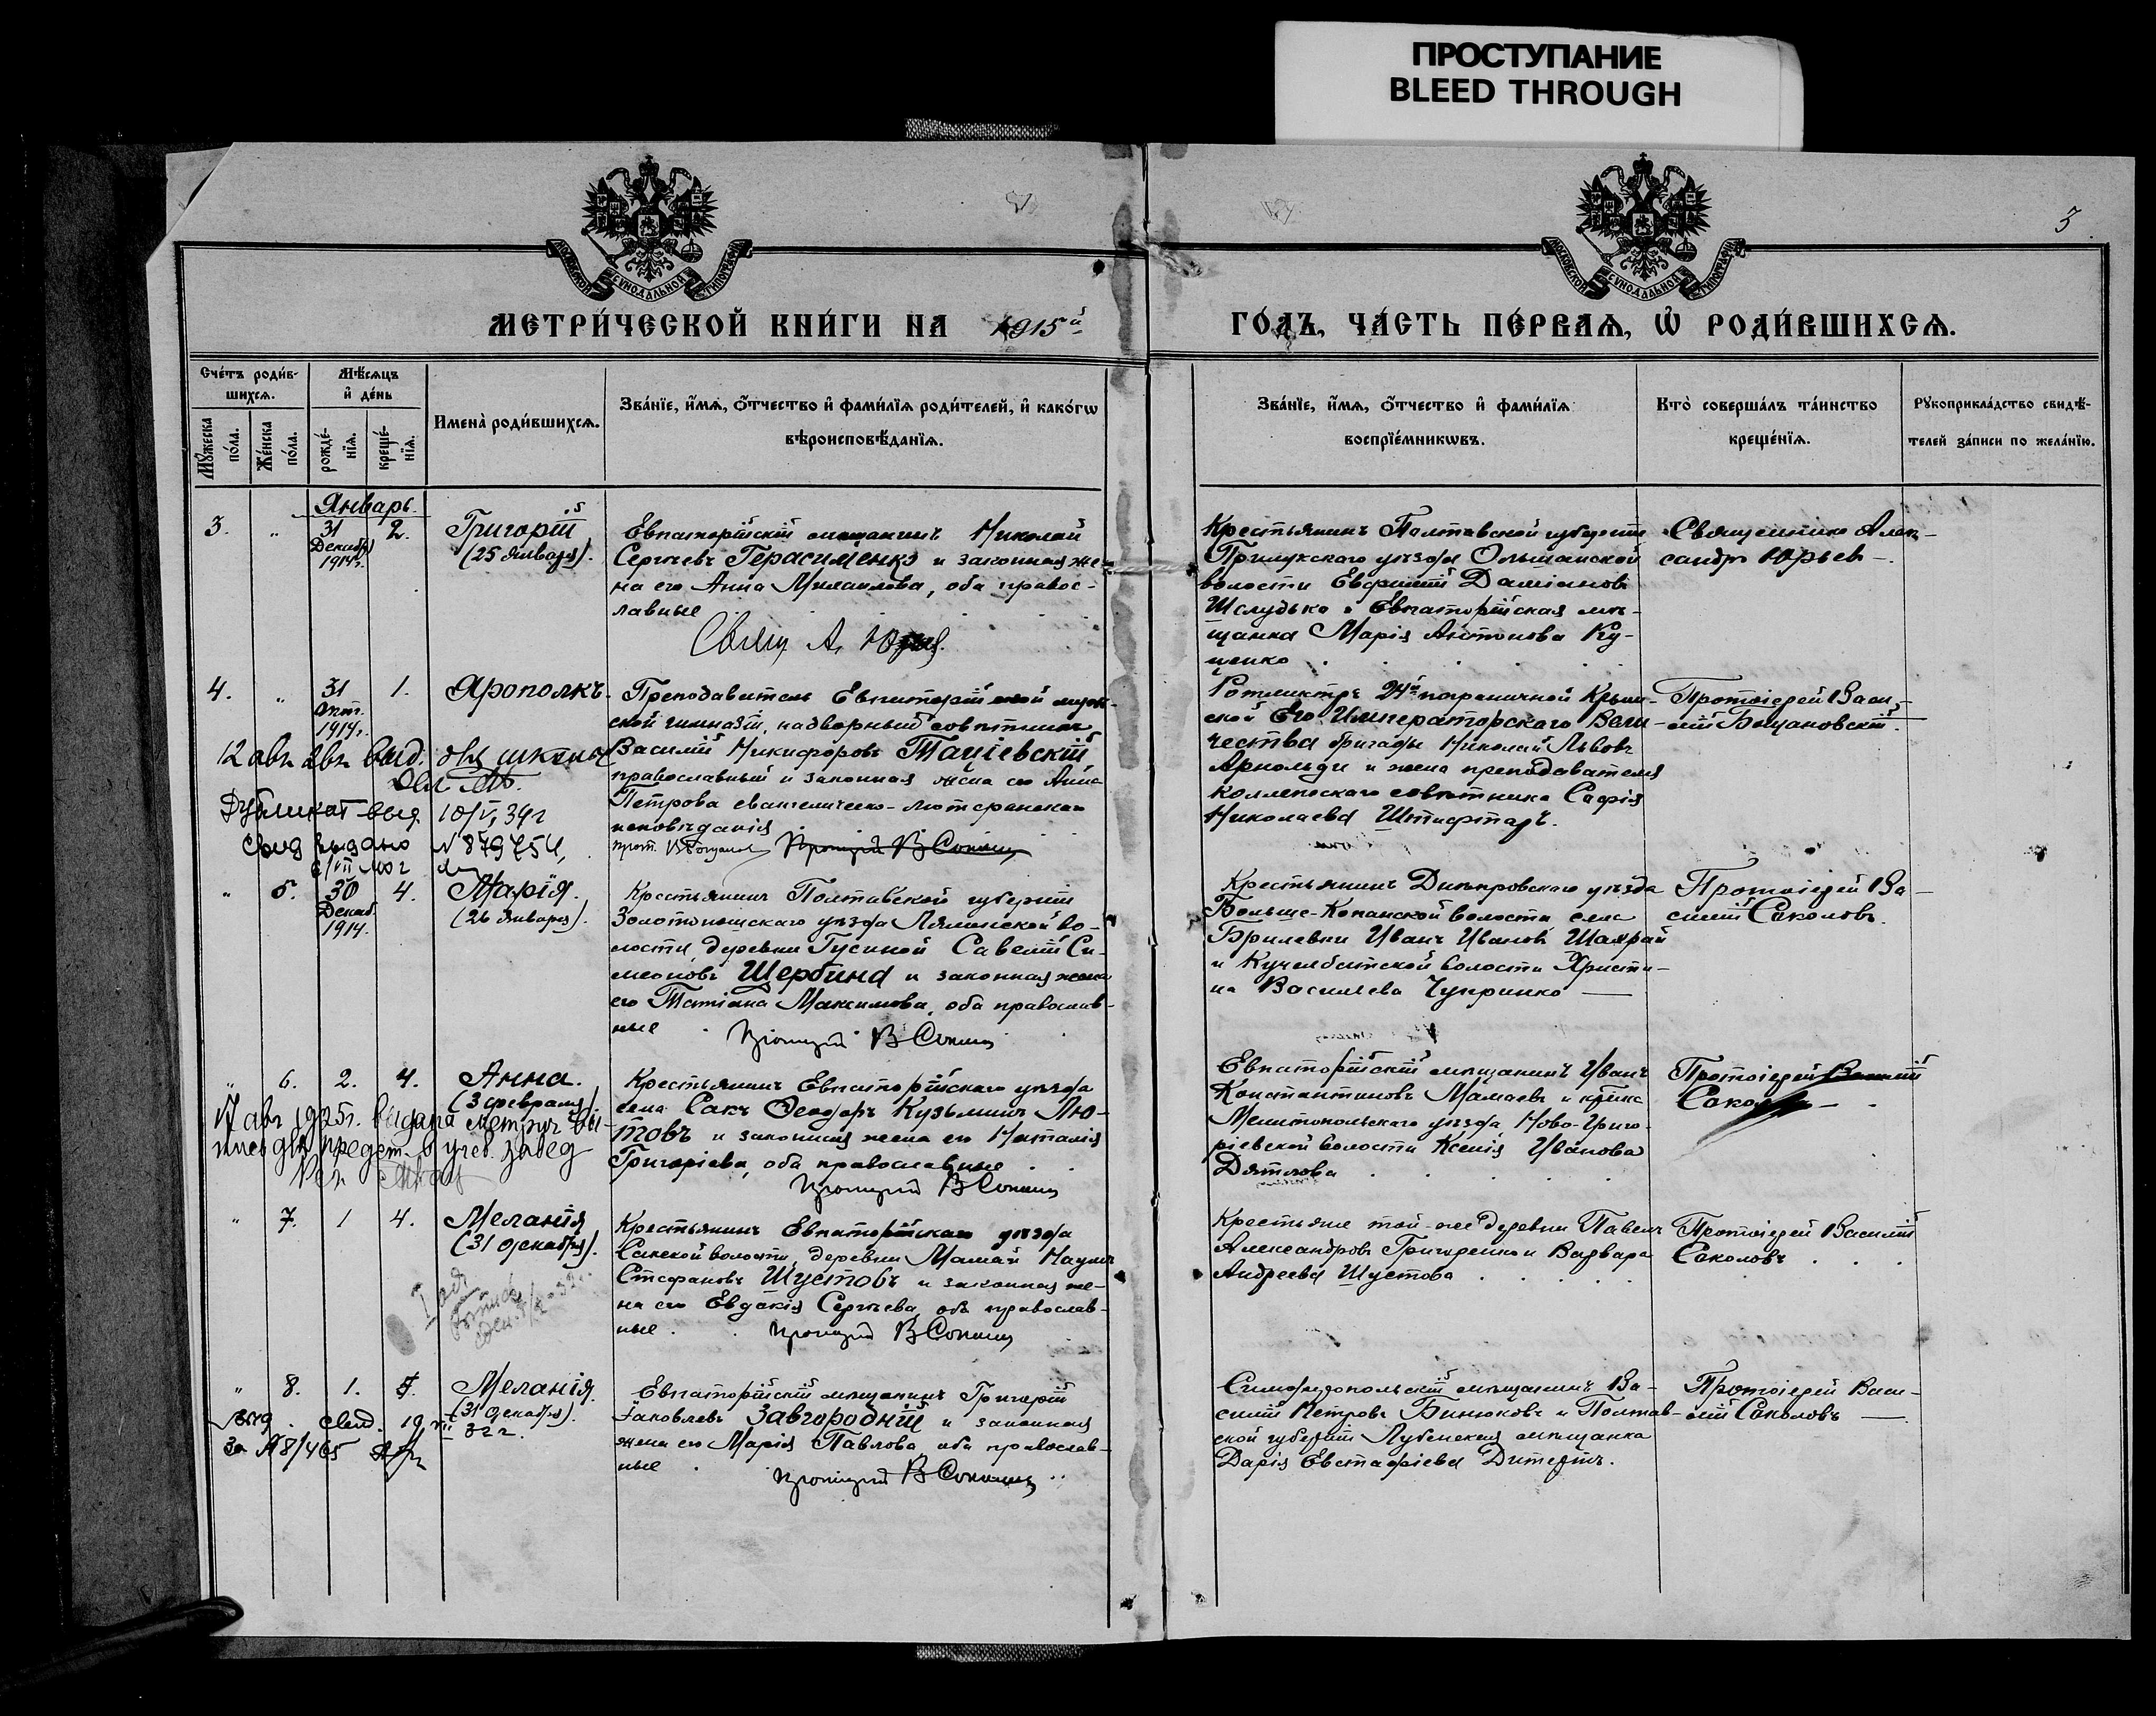 ПРОСТУПАНИЕ
BLEED THROUGH
3
МОСКОВСКОЙ СѴНОДАЛЬНОЙ ТИПОГРАФІИ
МОСКОВСКОЙ СѴНОДАЛЬНОЙ ТИПОГРАФІИ
МЕТРИ́ЧЕСКОЙ КНИ́ГИ НА 1915й
ГО́ДЪ, ЧА́СТЬ ПЕ́РВАѦ, Ѡ҆ РОДИ́ВШИХСѦ.
Сче́тъ роди́в-
шихсѧ.
Мѣ́сѧцъ
и҆ де́нь
Мꙋ́жеска
по́ла.
Же́нска
по́ла.
рожде́-
нїѧ.
креще́-
нїѧ.
Имена̀ роди́вшихсѧ.
Зва́нїе, и҆́мѧ, ѻ҆́тчество и҆ фами́лїѧ роди́телей, и҆ како́гѡ
вѣроисповѣ́данїѧ.
Зва́нїе, и҆́мѧ, ѻ҆́тчество и҆ фами́лїѧ
воспрїе́мникѡвъ.
Кто̀ соверша́лъ та́инство
креще́нїѧ.
Рꙋкоприкла́дство свидѣ́-
телей за́писи по жела́нїю.
Январь.
3. " 31 2. Григорій
Декабр.
1914 г.
(25 Января).
Евпаторійскій мѣщанинъ Николай
Сергѣевъ Герасименко и законная же-
на его Анна Михаилова, оба правос-
лавные
Свящ. А. Юрьев
Крестьянинъ Полтавской губерніи
Прилукскаго уѣзда Ольшанской
волости Евфимій Даміановъ
Шелудько и Евпаторійская мѣ-
щанка Марія Антонова Ку-
ценко
Священникъ Алек-
сандръ Юрьевъ
4. " 31 1. Ярополкъ.
1914 г.
Преподаватель Евпаторійской муж-
ской гимназіи, надворный совѣтникъ
Василій Никифоровъ Таціевскій,
православный и законная жена его Анна
Петрова евангелическо-лютеранскаго
исповѣданія
прот. В Боцанов Протоіерей В Соколов
Ротмистръ 24й пограничной Крым-
ской Его Императорскаго Вели-
чества бригады Николай Львовъ
Арнольди и жена преподавателя
коллежскаго совѣтника Софія
Николаева Штифтаръ.
Протоіерей Васи-
лій Боцановскій.
12 авг выд. для
Дубликат выд. 10/V, 34 г
Свид выдано № 879754,
" 5. 30 4. Марія.
Декаб.
1914.
(26 Января).
Крестьянинъ Полтавской губерніи
Золотоношскаго уѣзда Лялинской во-
лости, деревни Гусиной Савелій Си-
меоновъ Щербина и законная жена
его Татіана Максимова, оба православ-
ные
Протоіерей В Соколов
Крестьянинъ Днѣпровскаго уѣзда
Больше-Копанской волости села
Брилевки Иванъ Ивановъ Шахрай
и Кучелбатской волости Христи-
на Васильева Чупринко
Протоіерей Ва-
силій Соколовъ.
" 6. 2. 4. Анна.
(3 февраля).
Крестьянинъ Евпаторійскаго уѣзда
села Сакъ Ѳеодоръ Кузьминъ Лю-
товъ и законная жена его Наталія
Григоріева, оба православные
Протоіерей В Соколов
Евпаторійскій мѣщанинъ Иванъ
Константиновъ Мамаевъ и кр-нка
Мелитопольскаго уѣзда Ново-Григо-
ріевской волости Ксенія Иванова
Дятлова
Протоіерей Василій
Соколов
17 авг 1925 г. выдана метрич вы-
пись для предст. в учеб. завед
" 7. 1 4. Меланія
(31 Декабря).
Крестьянинъ Евпаторійскаго уѣзда
Сакской волости, деревни Мамай Наумъ
Стефановъ Шустовъ и законная же-
на его Евдокія Сергѣева, оба православ-
ные
Протоіерей В Соколов
Крестьяне той-же деревни Павелъ
Александровъ Григоренко и Варвара
Андреева Шустова
Протоіерей Василій
Соколовъ
" 8. 1. 5. Меланія.
(31 Декабря).
Евпаторійскій мѣщанинъ Григорій
Іаковлевъ Завгородній и законная
жена его Марія Павлова, оба православ-
ные
Протоіерей В Соколов
Симферопольскій мѣщанинъ Ва-
силій Петровъ Бинюковъ и Полтав-
ской губерніи Лубенская мѣщанка
Дарія Евстафіева
Протоіерей Васи-
лій Соколовъ
выд. свид. 19 VII 32 г.
за № 8/465